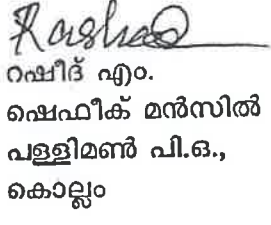 Rasheed
റഷീദ് എം.
ഷെഫീക് മൻസിൽ
പള്ളിമൺ പി.ഒ.,
കൊല്ലം